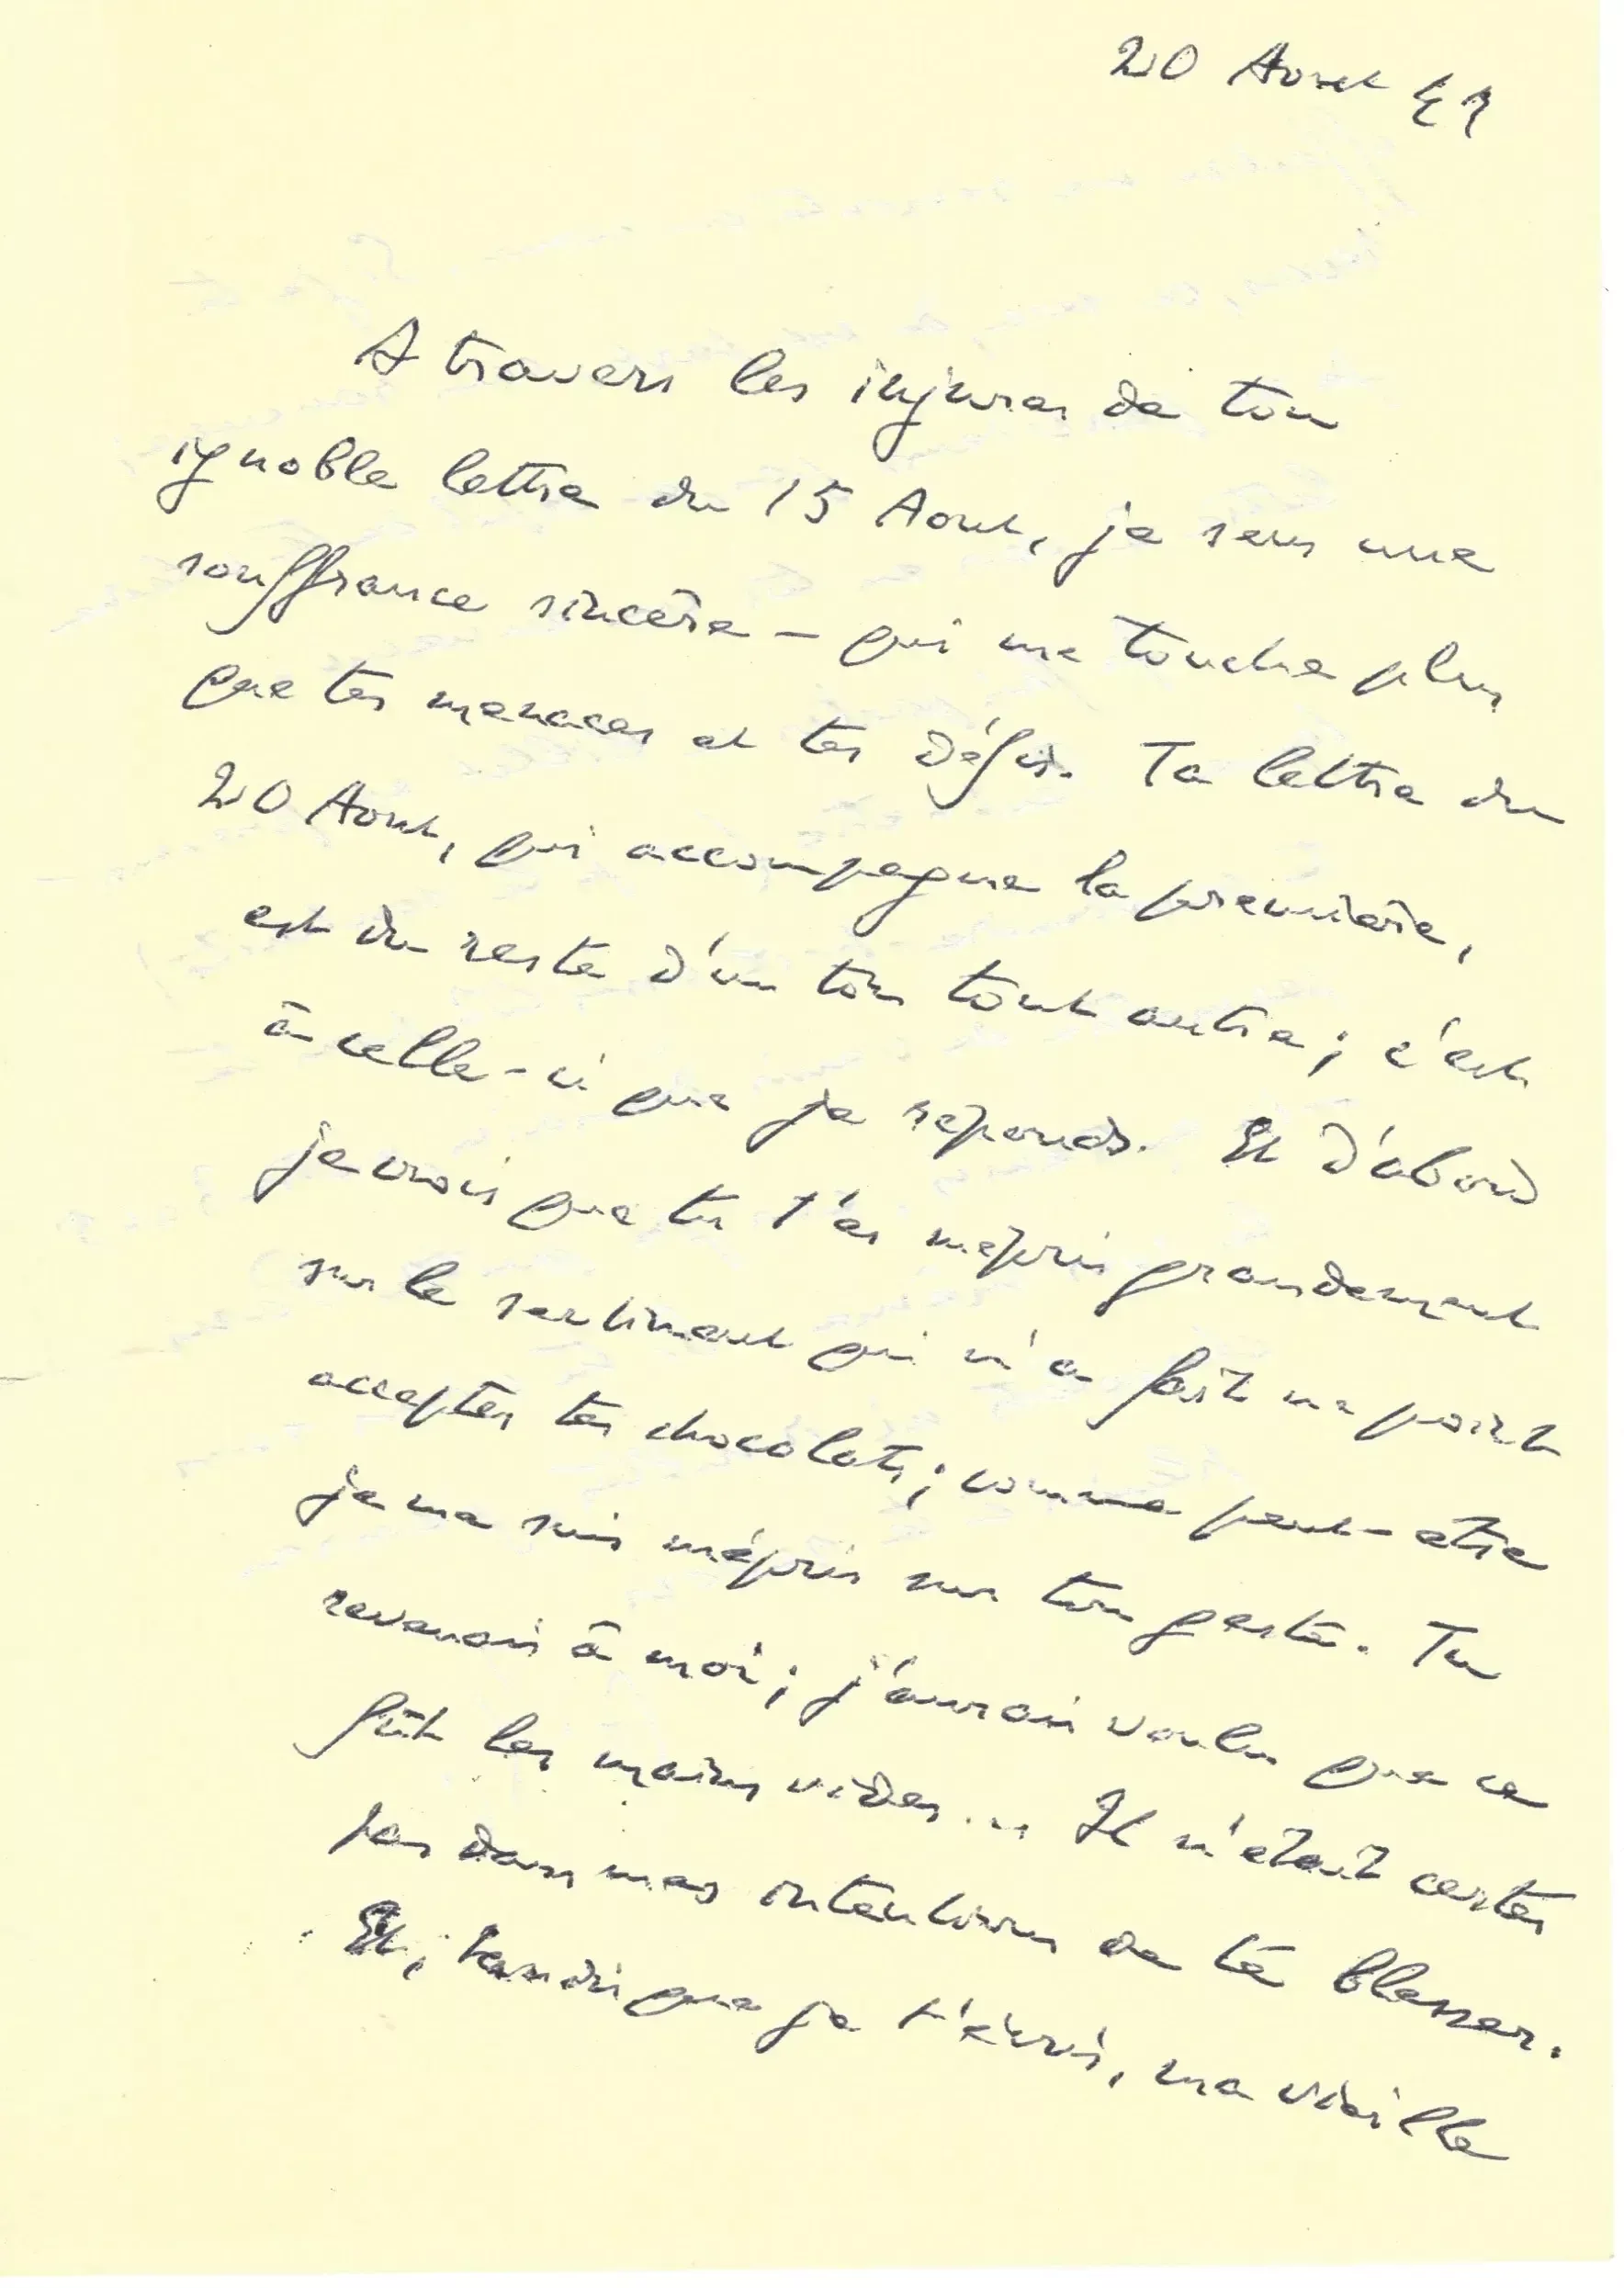 20 Aout 41
A travers les injures de ton
ignoble lettre du 15 Aout, je sens une
souffrance sincère – qui me touche plus
que tes menaces et tes défis. Ta lettre du
20 Aout, qui accompagne la première,
est du reste d'un ton tout autre ; c'est
à celle-ci que je reponds. Et d'abord
je crois que tu t'es mepris grandement
sur le sentiment qui m'a fait ne point
accepter tes chocolats ; comme peut-etre
je me suis mépris sur ton geste. Tu
revenais à moi ; j'aurais voulu que ce
fût les mains vides... Il n'était certes
pas dans mes intentions de te blesser.
Et, tandis que je t'écris, ma vieille